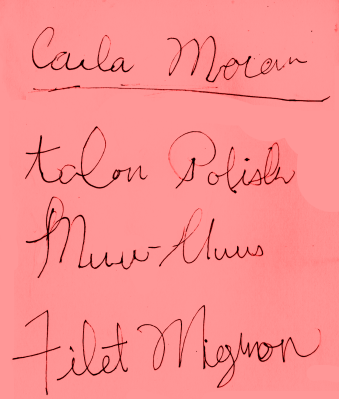 Carla Moran
talon Polish
Muu-Muus
Filet Mignon